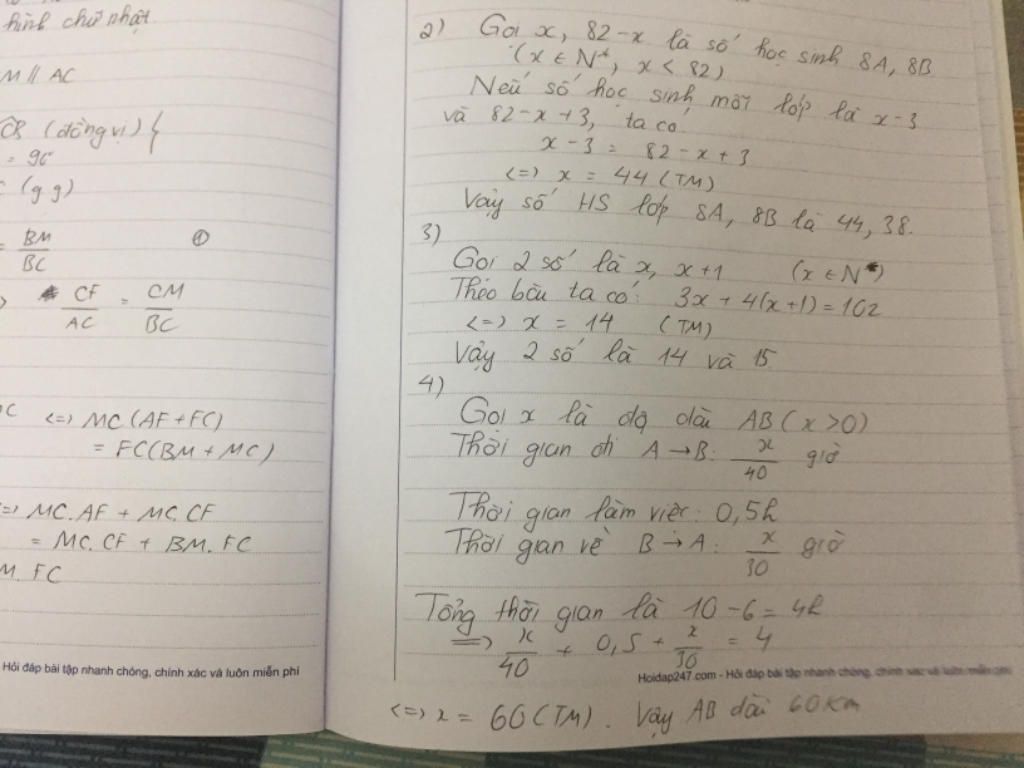 hình chữ nhật.
M // AC
(đồng vị) }
= 90°
(g g)
= BM/BC ①
CF/AC = CM/BC
<=> MC(AF+FC)
= FC(BM+MC)
=> MC.AF + MC.CF
= MC.CF + BM.FC
M.FC
Hỏi đáp bài tập nhanh chóng, chính xác và luôn miễn phí
2) Gọi x, 82-x là số học sinh 8A, 8B
(x ∈ N*, x < 82)
Nếu số học sinh mỗi lớp là x-3
và 82-x+3, ta có
x-3 = 82-x+3
<=> x = 44 (TM)
Vậy số HS lớp 8A, 8B là 44, 38.
3)
Gọi 2 số là x, x+1 (x ∈ N*)
Theo bài ta có: 3x + 4(x+1) = 102
<=> x = 14 (TM)
Vậy 2 số là 14 và 15.
4)
Gọi x là độ dài AB (x >0)
Thời gian đi A → B: x/40 giờ
Thời gian làm việc: 0,5h
Thời gian về B → A: x/30 giờ
Tổng thời gian là 10-6 = 4h
=> x/40 + 0,5 + x/30 = 4
Hoidap247.com - Hỏi đáp bài tập nhanh chóng, chính xác và luôn miễn phí
<=> x = 60 (TM). Vậy AB dài 60km